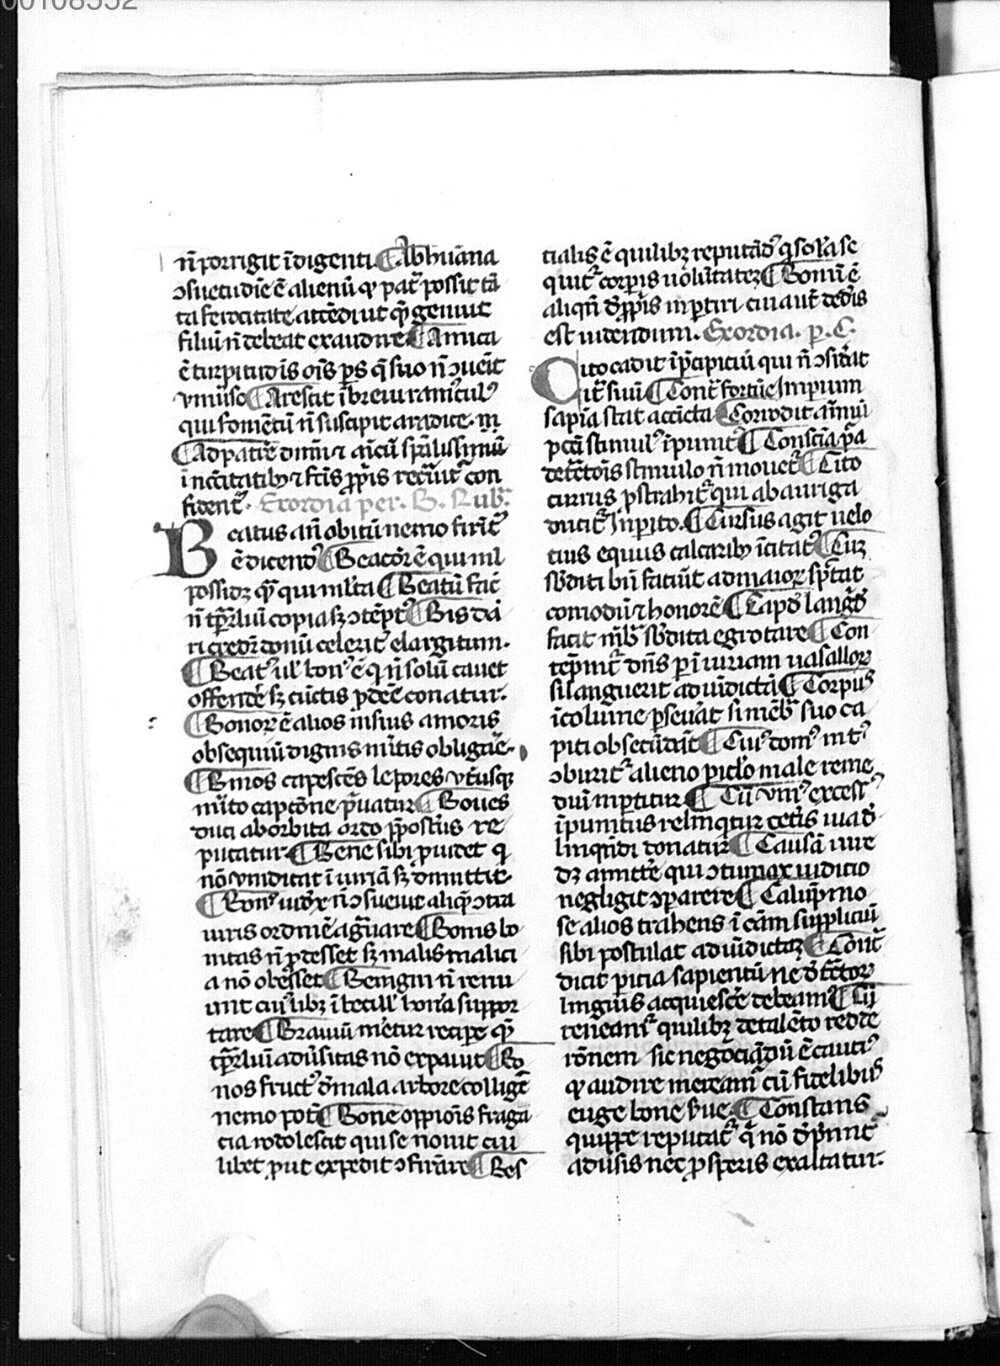 00108332
nō porrigit īdigenti ¶ Ab hūana
ɔsuetudīe ē alienū ꝙ pat̄ possit tā
ta ferocitate accēdi ut qm̄ genuit
filiū nō debeat exaudire ¶ Amica
ē turpitudīs oīs ps̄ q̄ suo nō ɔueīt
vniūso ¶ Arescit ī breui ramꝰculꝰ
qui fomētū nō suscipit a radice. m̄
¶ Ad patrē dnm̄ ⁊ amicū spālissimū
ī nc̄citatibꝫ ⁊ fc̄is ꝓpris recurrit̄ con
fident̄. Exordia per. B. Rub̄.
Beatus an̄ obitū nemo firīt̄
ē dicendꝰ ¶ Beacior ē qui nl̄
possidꝫ qm̄ qui ml̄ta ¶ Beatū fac̄
nō tp̄aliū copia sꝫ ɔtēptꝰ ¶ Bis dā
ri credit̄ donū celerit̄ elargitum.
¶ Beatꝰ ul̓ bonꝰ ē q nō solū cauet
offendē sꝫ cūctis ꝓdēe conatur.
¶ Bonoꝝ ē alios nisius amoris
obsequiū dignis mītis obligāe.
¶ Bīnos capescēs lepores vtūsqꝫ
mīto capc̄one p̄uatur ¶ Boues
duci ab orbita ordo p̄posterus re
putatur ¶ Bene sibi ꝓuidet q
nō vindicat ī iuriā sꝫ dimittit.
¶ Bonꝰ iudex nō ɔsueuit aliqd ɔtra
iuris ordinē agḡuare ¶ Bonis bo
nitas nō ꝓdesset sꝫ malis malici
a nō obesset ¶ Benigni nō renu
unt cuiꝰlibꝫ ībecill̓ bona suppor
tare ¶ Brauiū metur recipe qm̄
tp̄aliū adūsitas nō expauit ¶ Bo
nos fructꝰ d̄ mala arbore colligē
nemo pot̄ ¶ Bone oppiōis fraga
cia redolescit qui se nouit cui
libet ꝓut expedit ɔfirāre ¶ Bes
tialis ē quilibꝫ reputādꝰ q sola se
quit̄ corpis uolūtatez ¶ Bonū ē
aliqn̄ d̄ ꝓpris īpertiri cui aut̄ dedis
est uidendum. Exordia. p. C.
Cito cadit ī p̄cipiciū qui nō ɔsidat
it̄ suū ¶ Cont̄ fortūe Imperium
sapīa stat accīcta ¶ Corrodit aīmū
pcc̄i stimulꝰ īpunitꝰ ¶ Consciā p̄a
detc̄tōis stimulo nō mouet̄ ¶ Cito
currus ꝓstrahit̄ qui ab auriga
ducit̄ Inpito. ¶ Cursus agit uelo
cius equus calcaribꝫ īcitatꝰ ¶ Cuz
sb̄diti bn̄ faciūt ad maioꝝ spc̄tat
comodū ⁊ honorē ¶ Capd̓ langd̓
facit mb̄r sb̄dita egrotare ¶ Con
tēpnit̄ dn̄s per iniuriam uasalloꝝ
si languerit ad uīdictā ¶ Corpus
īcolume pseuat si mēb̄ suo ca
piti obsecūdāt ¶ Cuiꝰ domꝰ intꝰ
ɔburit̄ alieno piclo male reme
diū inpertitur ¶ Cū vniꝰ excessꝰ
īpunitus relinqtur cetis uia d̄
linqn̄di donatur ¶ Causā iure
dꝫ amittē qui ɔtumax iudicio
negligit ɔparere ¶ Calūpnio
se alios trahens ī cām suppliciū
sibi postulat ad uīdictaꝫ ¶ Cōuīt
dicit picia sapientū ne d̄tc̄toꝝ
linguis acquiescē debeam̄ ¶ Cū
teneant̄ quilibꝫ de talēto redde
rōnem sic negociādū ē cauciꝰ
ꝙ audire meream̄ cū fidelibus
euge bone s̄ue. ¶ Constans
quippe reputat̄ q̄ nō d̄pmit
adūsis nec ꝓsperis exaltatur.